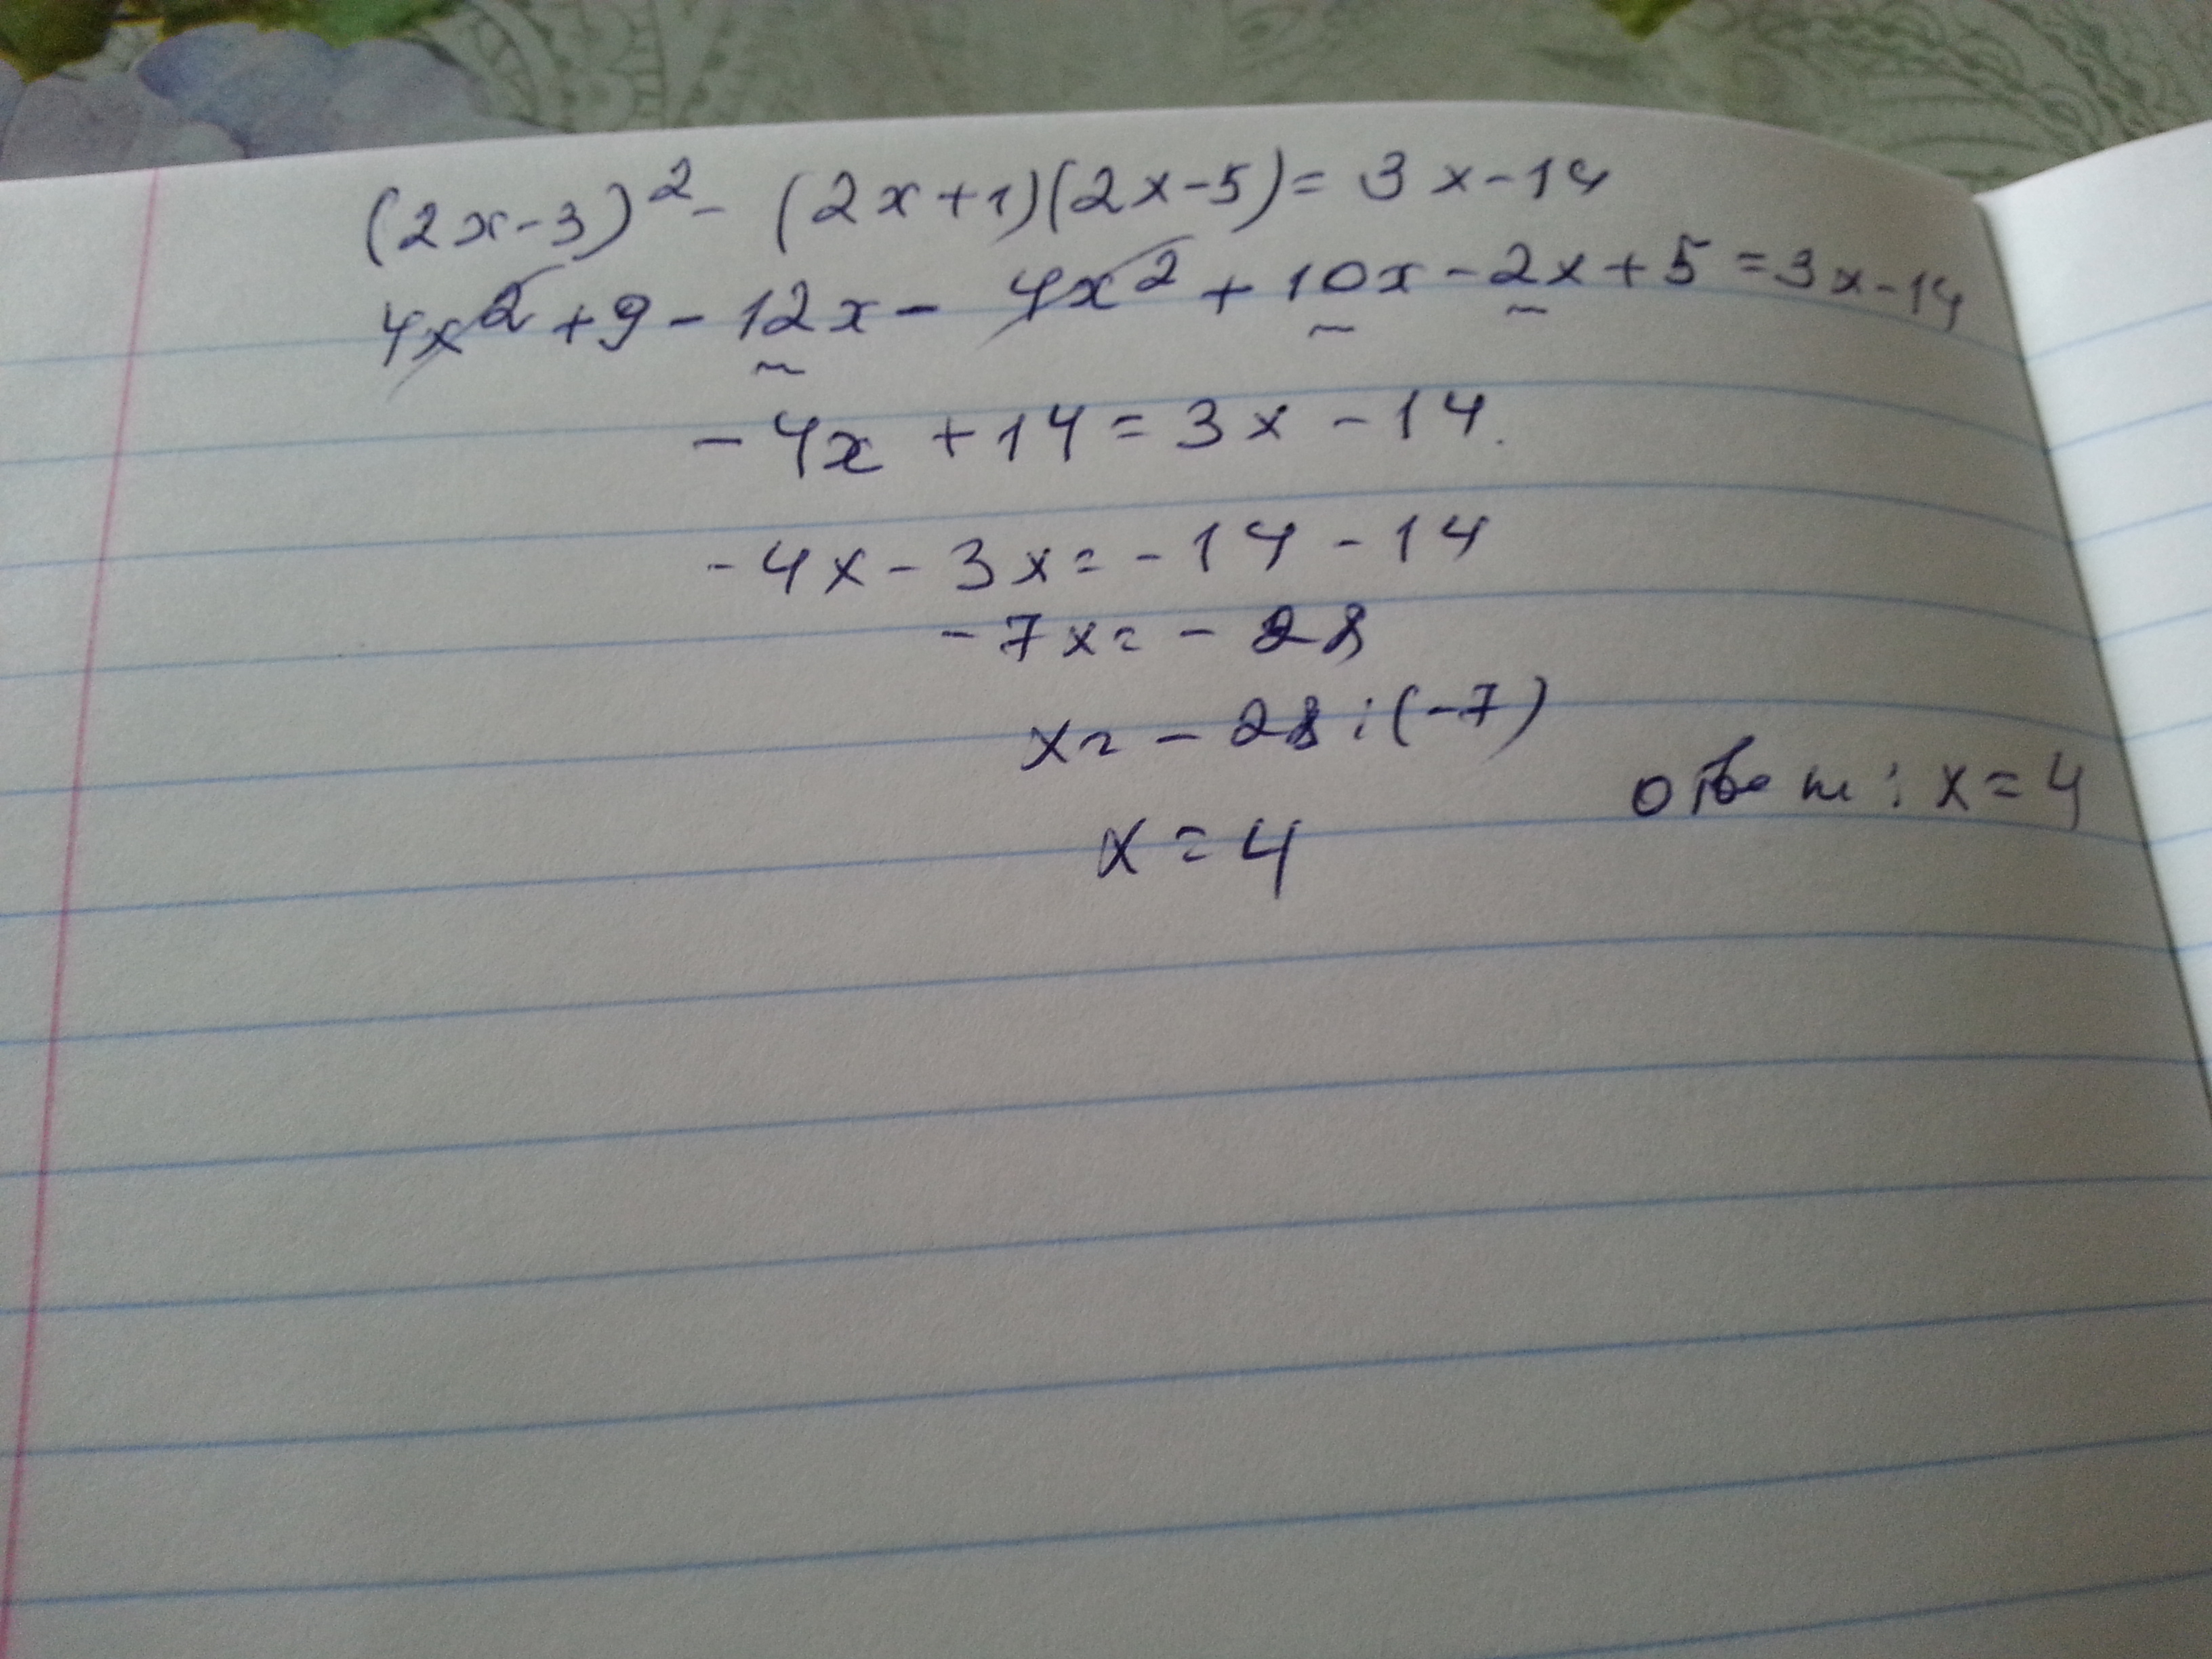 (2x-3)² - (2x+1)(2x-5) = 3x-14
4x² + 9 - 12x - 4x² + 10x - 2x + 5 = 3x - 14
-4x + 14 = 3x - 14.
-4x - 3x = -14 - 14
-7x = -28
x = -28 : (-7)
x = 4
ответ : x = 4